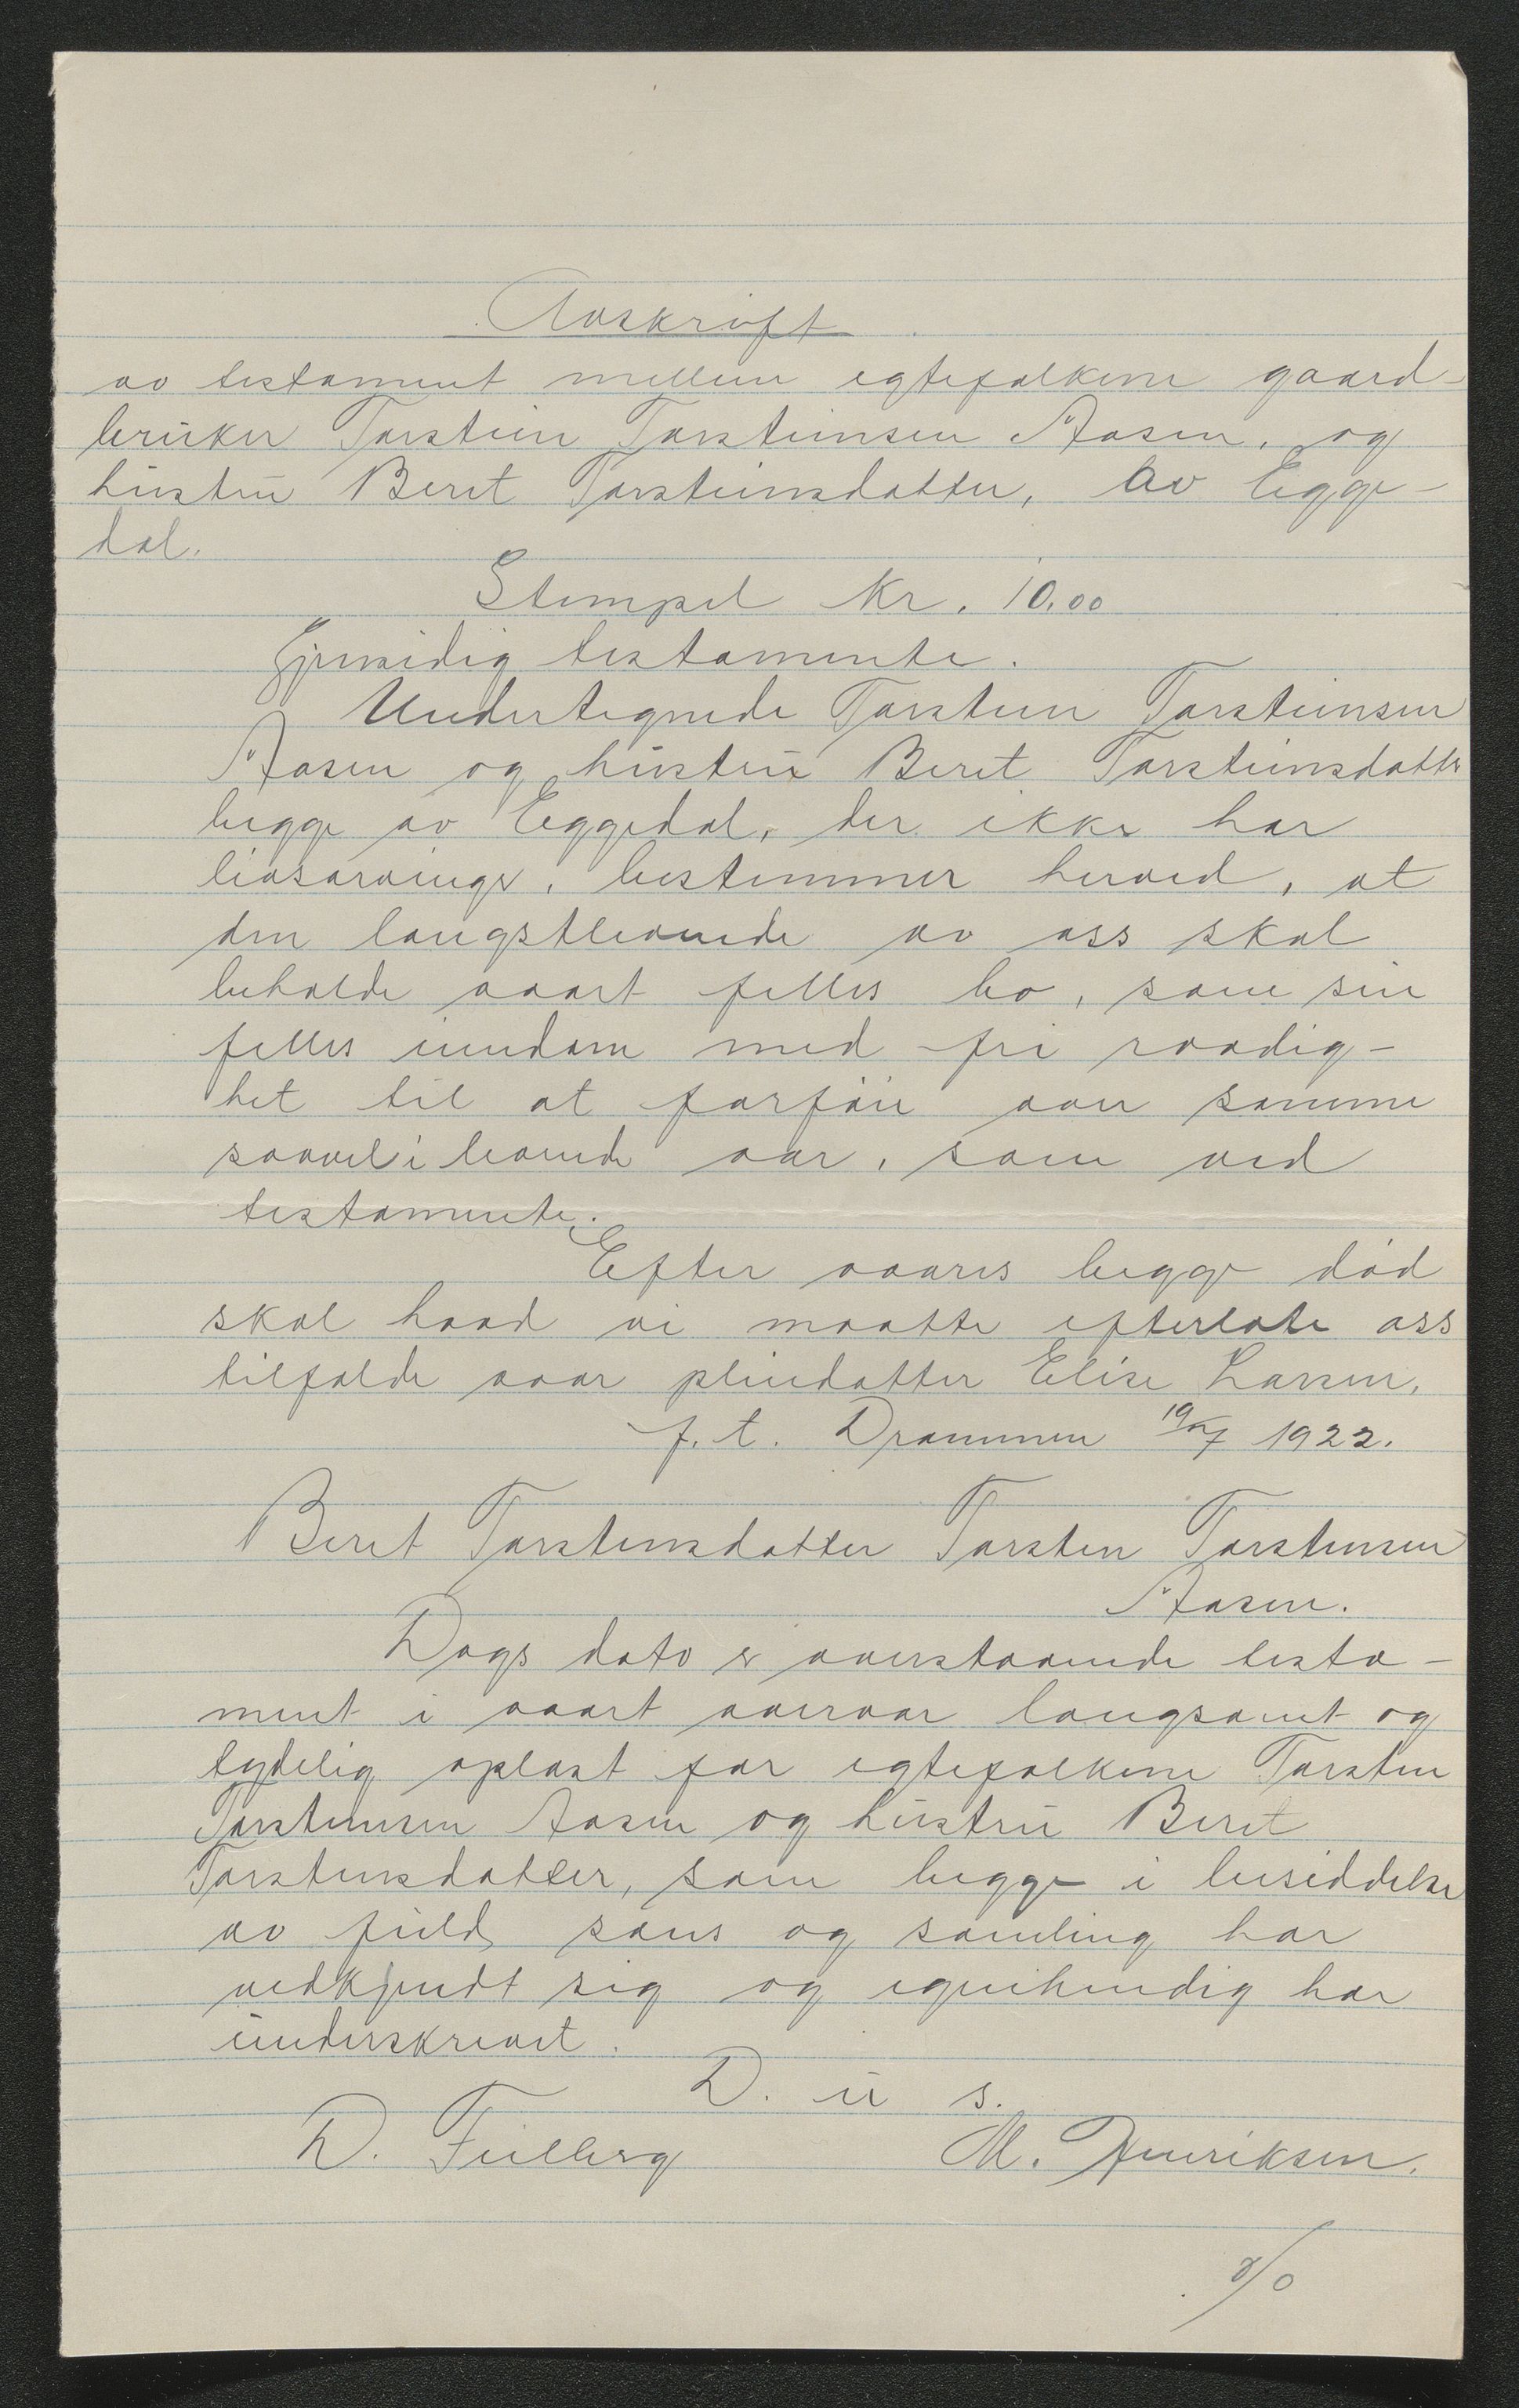 Avskrift
av testament mellem egtefolkene gaard-
bruker Torstein Torsteinsen Aasen, og
hustru Beret Torsteinsdatter, av Egge-
dal.
Stempel kr. 10.00
Gjensidig testamente.
Undertegnede Torstein Torsteinsen
Aasen og hustru Beret Torsteinsdatter
begge av Eggedal, der ikke har
livsarvinger, bestemmer herved, at
den længstlevende av oss skal
beholde vaart felles bo, som sin
felles eiendom med fri raadig-
het til at forføie over samme
saavel i levende aar, som ved
testamente.
Efter vaares begge død
skal hvad vi maatte efterlate oss
tilfalde vaar pleiedatter Elise Larsen.
f. t. Drammen 19/7 1922.
Beret Torstensdatter Torsten Torstensen
Aasen.
Dags dato er overstaaende testa-
ment i vaart overvær langsomt og
tydelig oplæst for egtefolkene Torsten
Torstensen Aasen og hustru Beret
Torstensdatter, som begge i besiddelse
av fuld sans og samling har
vedkjendt sig og egenhendig har
underskrevet.
D. u s.
D. Fulberg M. Henriksen.